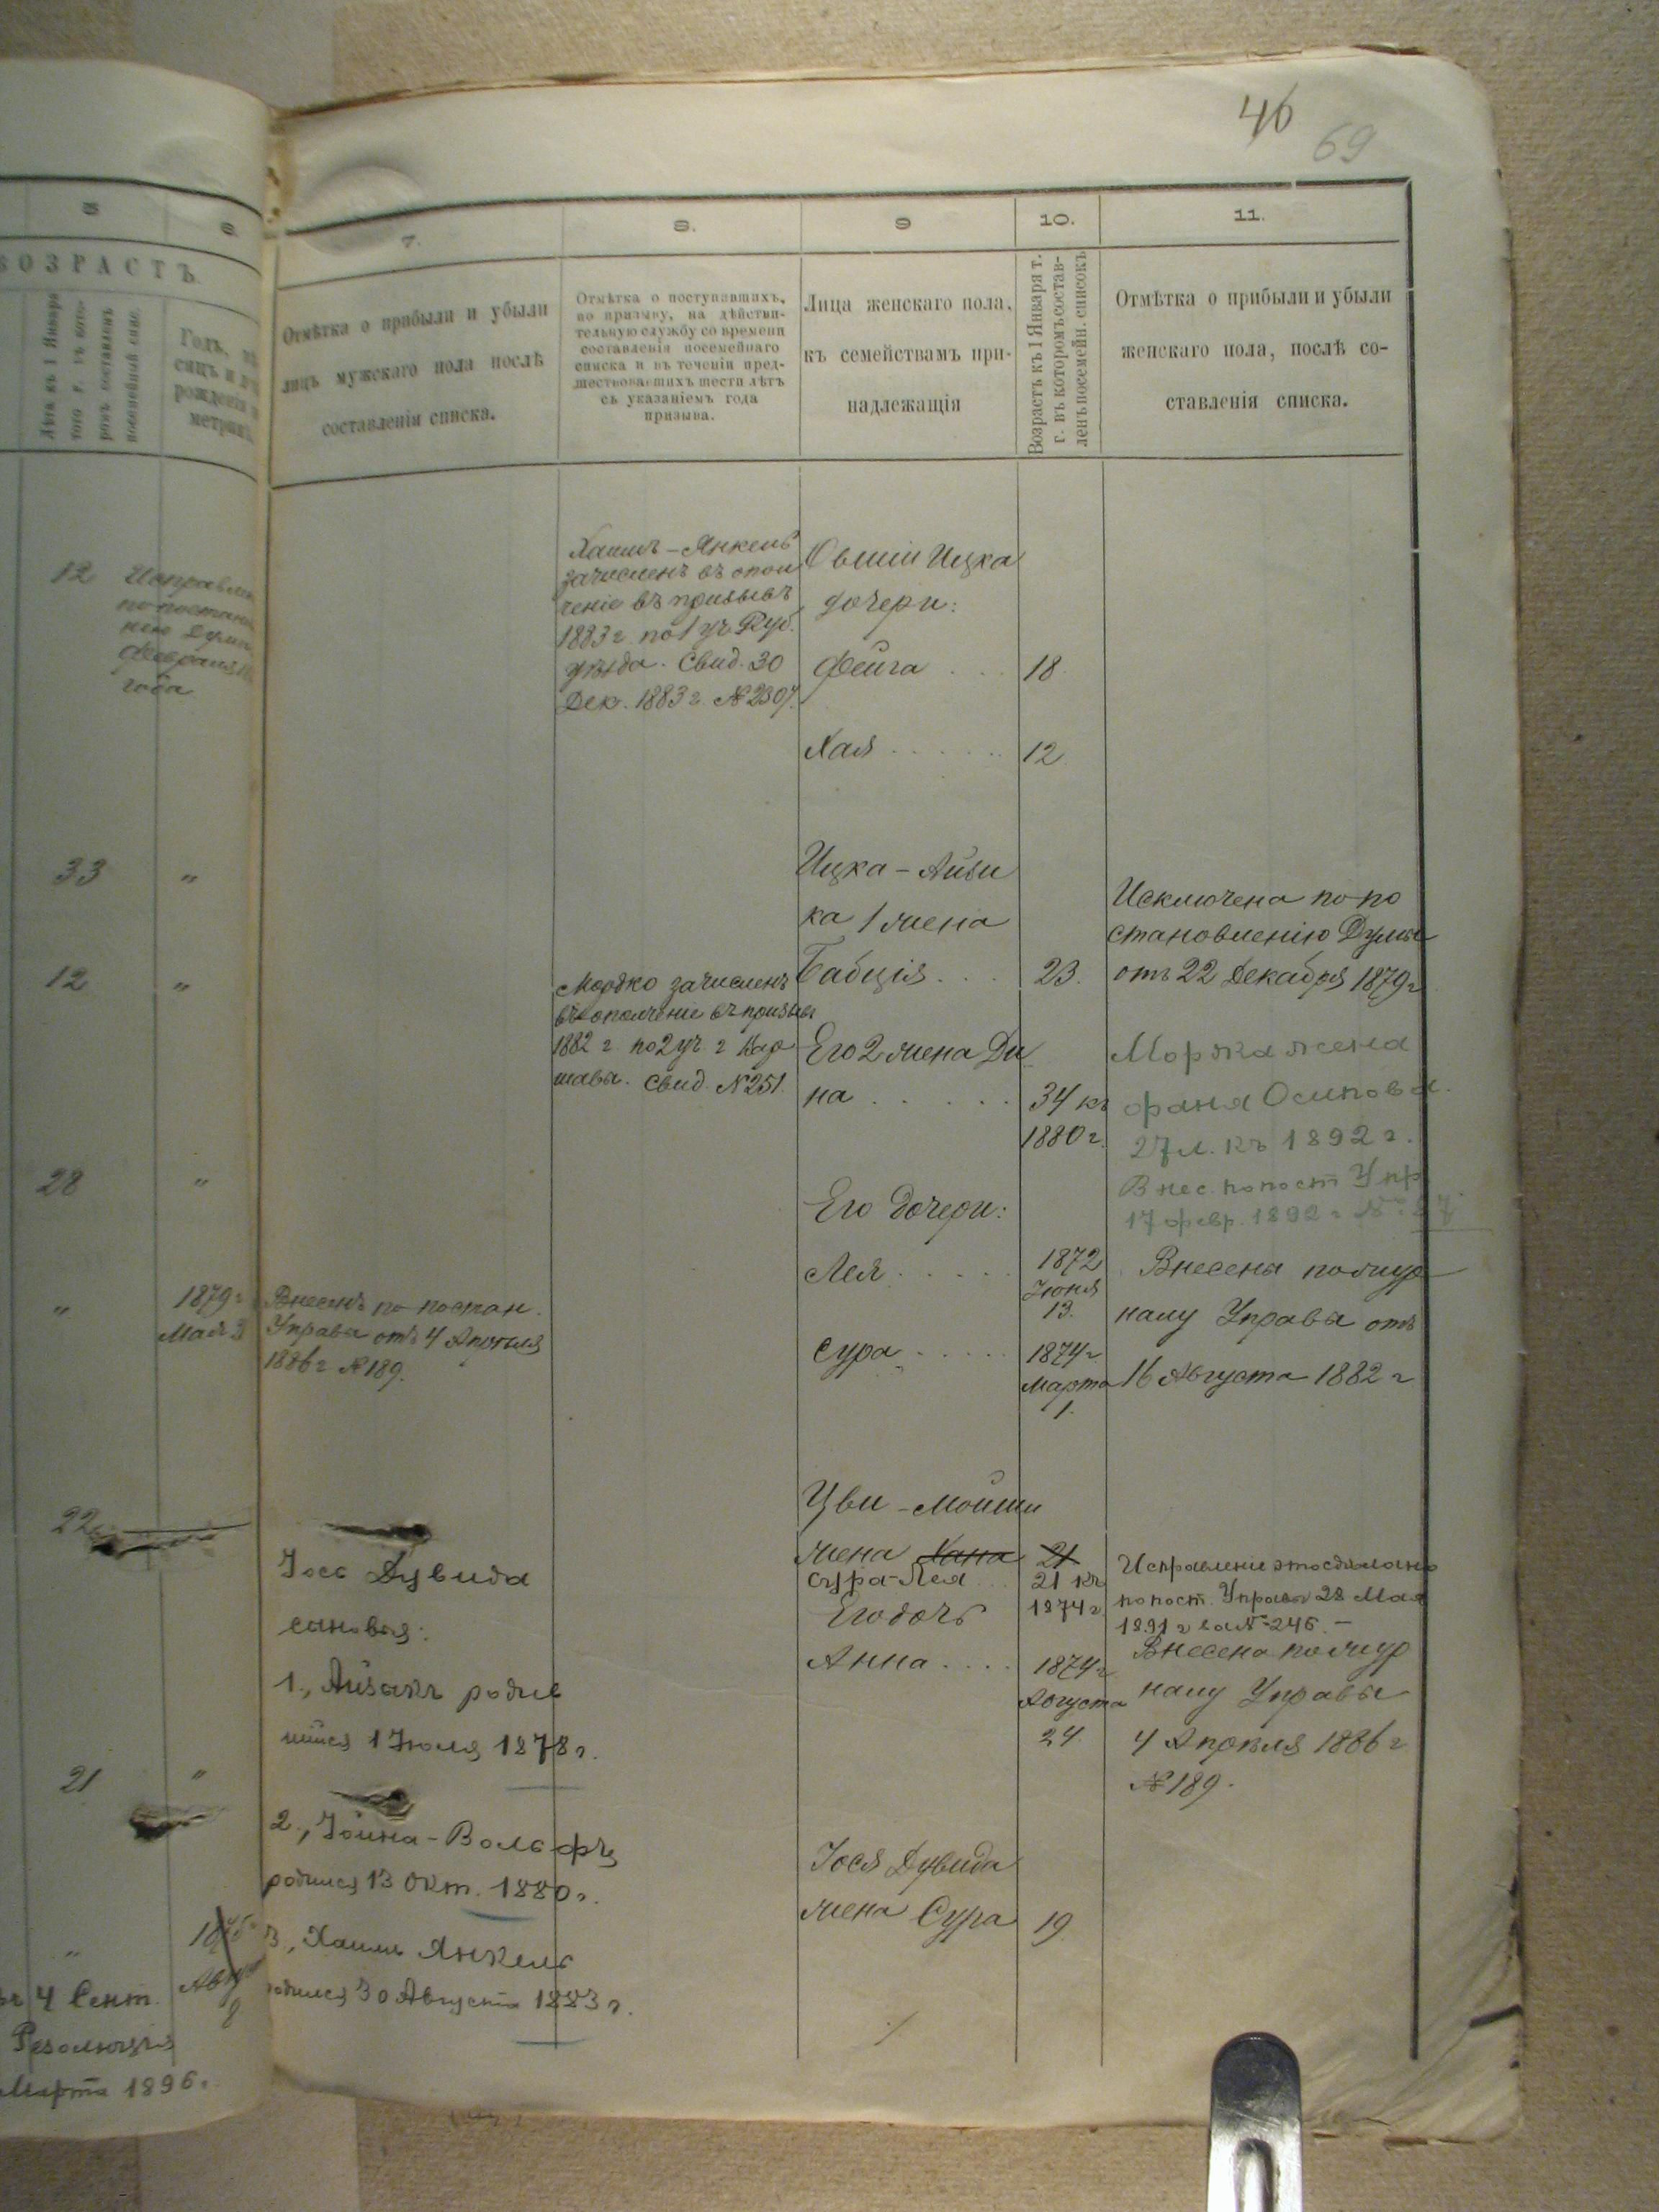 46
69
5
6.
ВОЗРАСТЪ.
Годъ, мѣ
сяцъ и д
рожденія
метрик
7.
8.
9
10.
11.
Отмѣтка о прибыли и убыли
лицъ мужскаго пола послѣ
составленія списка.
Отмѣтка о поступившихъ,
по призыву, на дѣйстви-
тельную службу со времени
составленія посемейнаго
списка и въ теченіи пред-
шествовавшихъ шести лѣтъ
съ указаніемъ года
призыва.
Лица женскаго пола,
къ семействамъ при-
надлежащія
Возрастъ къ 1 Января т.
г. въ которомъ состав-
ленъ посемейн. списокъ
Отмѣтка о прибыли и убыли
женскаго пола, послѣ со-
ставленія списка.
12
Исправлен
по постано
нію Думы
Февраля
года
33 "
12 "
28 "
" 1879 г
Мая 3
22
21 "
"
4 Сент.
Резолюція
Марта 1896 г.
Внесенъ по постан.
Управы отъ 4 Апрѣля
1886 г № 189.
Іось Дувида
сыновья:
1., Айзакъ родив
шійся 1 Іюля 1878 г.
2., Іойна-Вольфъ
родился 13 Окт. 1880 г.
3., Хаимъ Янкель
родился 30 Августа 1883 г.
Хаимъ-Янкель
зачисленъ въ опол
ченіе въ призывъ
1883 г. по 1 уч. Руб.
уѣзда. Свид. 30
Дек. 1883 г. № 2307.
Мордко зачисленъ
въ ополченіе въ призывъ
1882 г. по 2 уч. г. Вар
шавы. Свид. № 251.
Овшіи Ицка
дочери:
Фейга . . . 18
Хая . . . . . . 12
Ицка-Айзи
ка 1 жена
Бабція . . . 23.
Его 2 жена Ди
на . . . . . 34 къ
1880 г.
Его дочери:
Лея . . . . . 1872
Іюня
13.
Сура . . . . . 1874 г
Марта
1.
Цви-Мойши
жена Хана 21
Сура-Лея . . . 21 къ
1874 г
Его дочь
Анна . . . . 1874 г
Августа
24.
Іося Дувида
жена Сура 19
Исключена по по
становленію Думы
отъ 22 Декабря 1879 г
Моржа жена
Фаня Осипова.
27 л. къ 1892 г.
Внес. по пост Упр
17 февр. 1892 г
Внесена по жур
налу Управы отъ
16 Августа 1882 г
Исправленіе это сдѣлано
по пост. Управы 28 Мая
1891 г за № 246. —
Внесена по жур
налу Управы
4 Апрѣля 1886 г
№ 189.